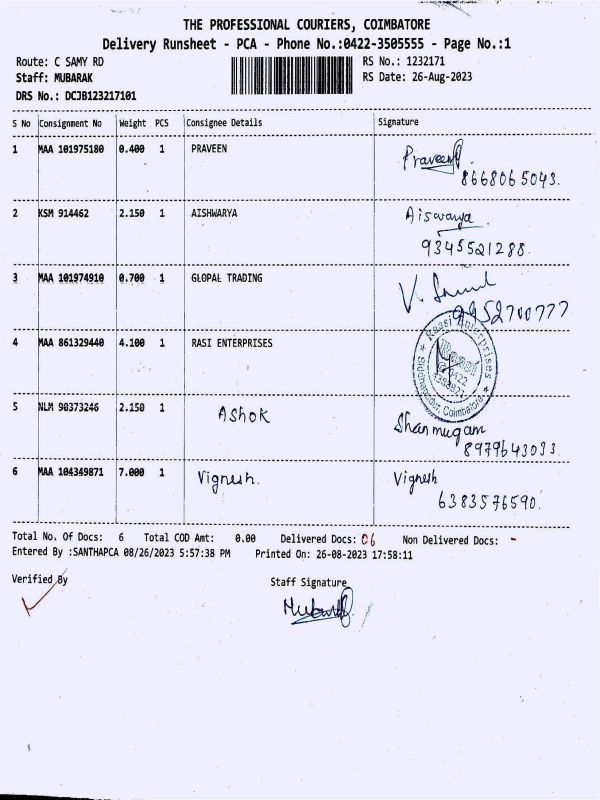 THE PROFESSIONAL COURIERS, COIMBATORE
Delivery Runsheet - PCA - Phone No.:0422-3505555 - Page No.:1
Route: C SAMY RD RS No.: 1232171
Staff: MUBARAK RS Date: 26-Aug-2023
DRS No.: DCJB123217101
S No Consignment No Weight PCS Consignee Details Signature
1 MAA 101975180 0.400 1 PRAVEEN Praveen
8668065043.
2 KSM 914462 2.150 1 AISHWARYA Aiswarya
9345521288.
3 MAA 101974910 0.700 1 GLOPAL TRADING
9952700777
4 MAA 861329440 4.100 1 RASI ENTERPRISES Raasi Enterprises
Coimbatore
5 NLM 90373246 2.150 1 Ashok Shanmugam
8979643033
6 MAA 104349871 7.000 1 Vignesh. Vignesh
6383576590.
Total No. Of Docs: 6 Total COD Amt: 0.00 Delivered Docs: 06 Non Delivered Docs: -
Entered By :SANTHAPCA 08/26/2023 5:57:38 PM Printed On: 26-08-2023 17:58:11
Verified By Staff Signature